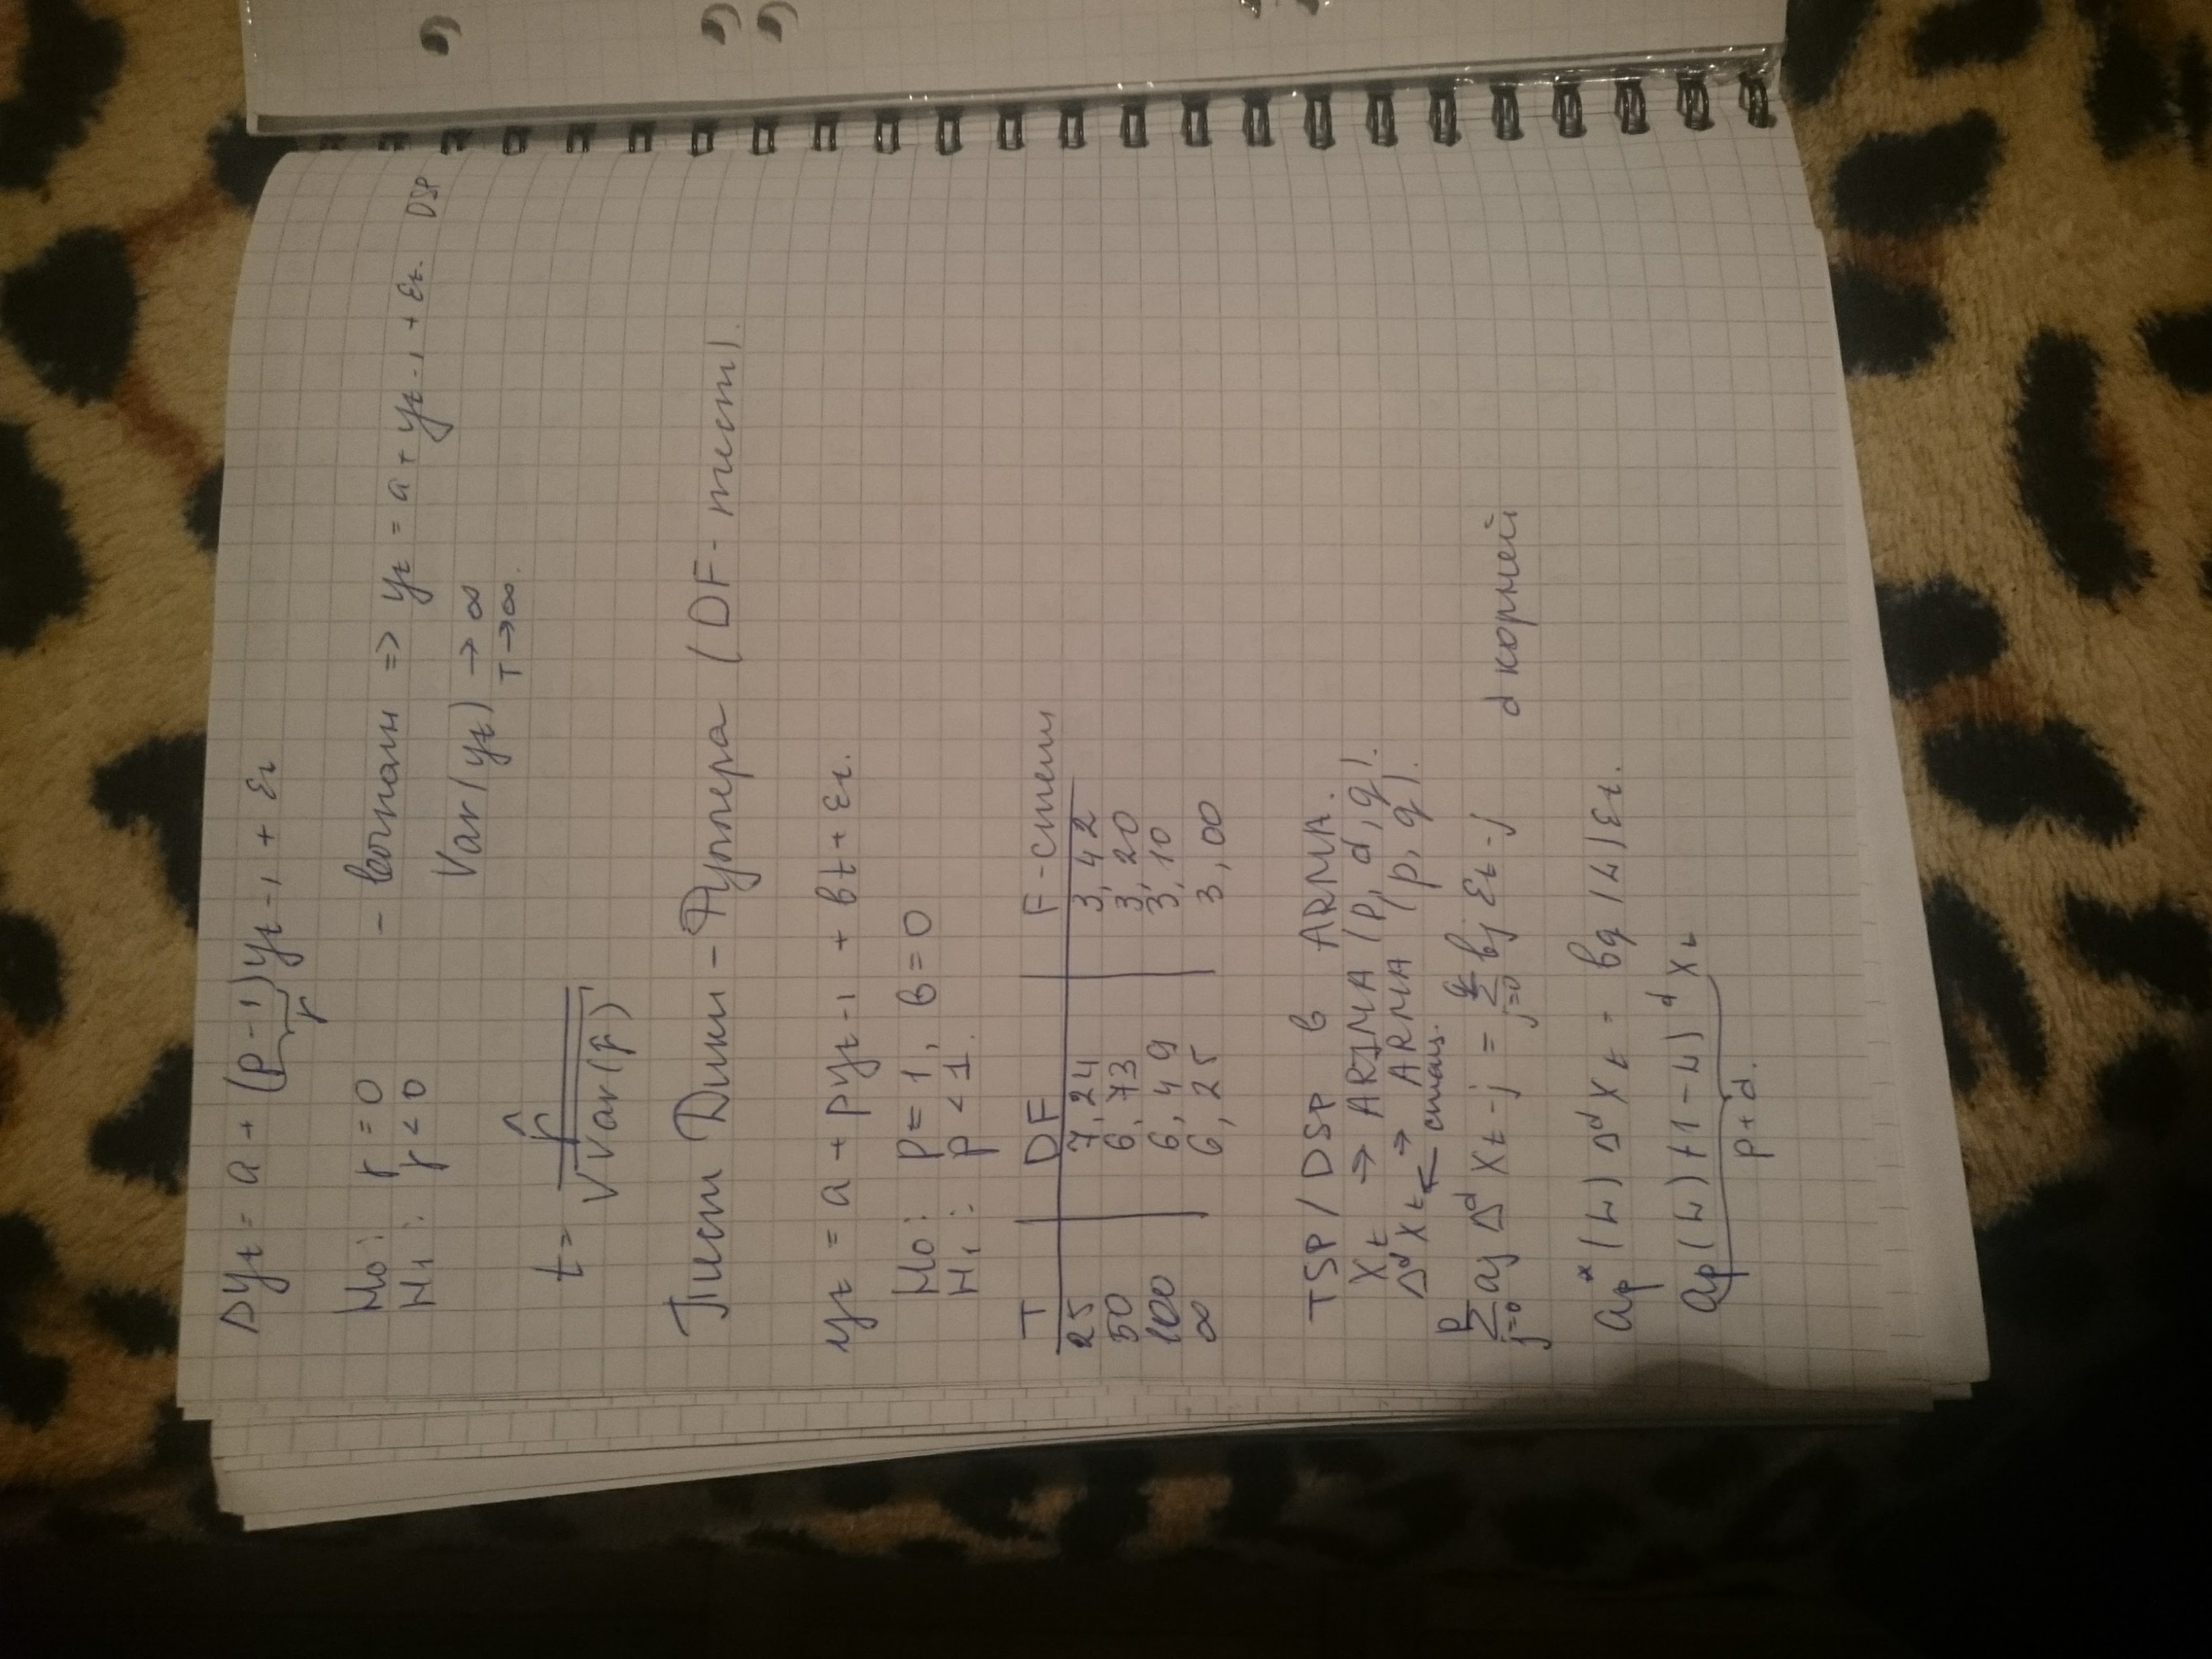 Δyt = a + (p-1)yt-1 + εt
r
H0: r = 0
H1: r < 0
=> yt = a + yt-1 + εt. DSP
Var(yt) → ∞
T→∞.
t = r̂ / √Var(r̂)
Тест Дики-Фуллера (DF-тест).
yt = a + pyt-1 + bt + εt.
H0: p = 1, b = 0
H1: p < 1.
T | DF | F-стат
25 | 7,24 | 3,42
50 | 6,73 | 3,20
100 | 6,49 | 3,10
∞ | 6,25 | 3,00
TSP / DSP в ARMA.
Xt → ARIMA (p, d, q).
Δ^d Xt → ARMA (p, q).
← стац.
p Σ j=0 aj Δ^d Xt-j = q Σ j=0 bj εt-j
d корней
ap*(L) Δ^d Xt = bq(L) εt.
ap(L)(1-L)^d Xt
p+d.